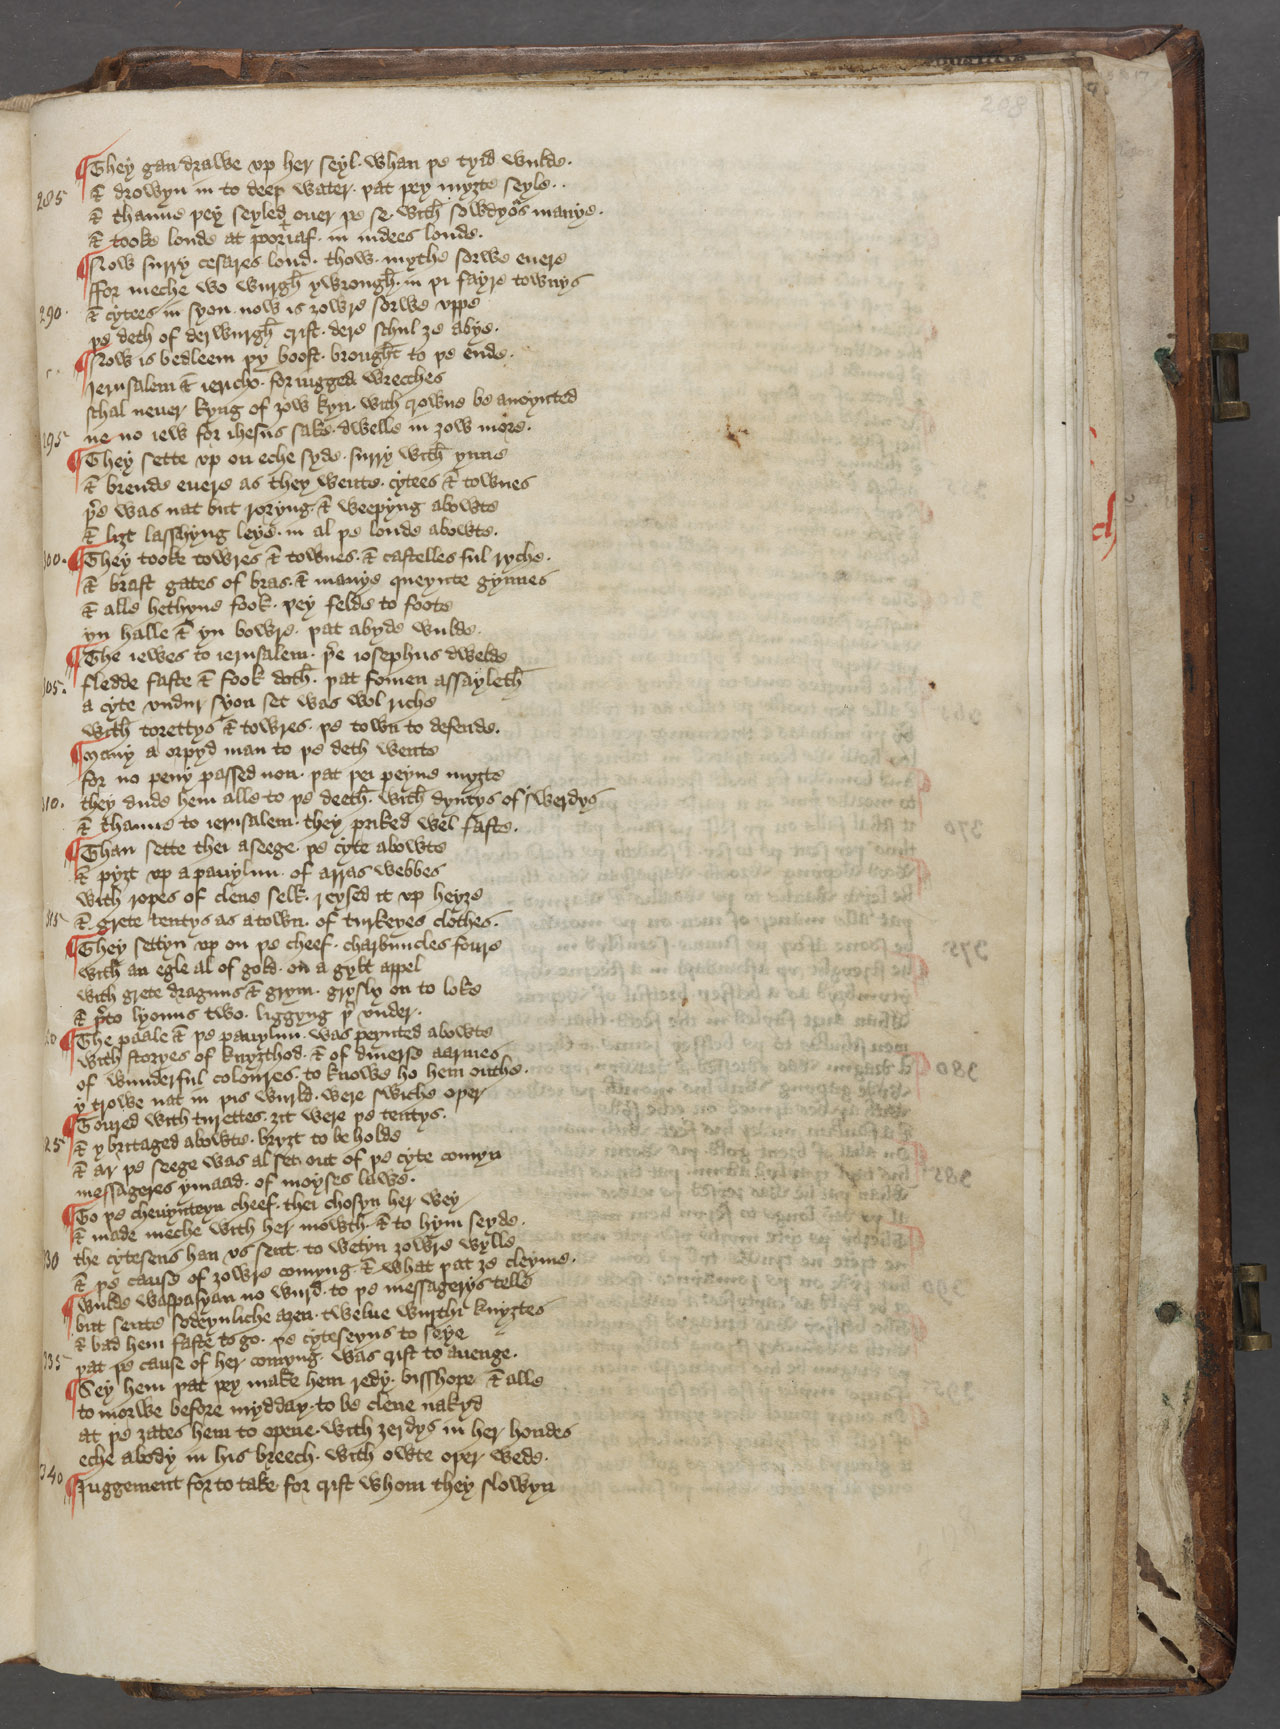 208
They gan drawe vp her seyl · whan þe tyid wulde ·
285 & drowyn in to deep water · þat þey myȝte seyle ··
& thanne þey seyled ouer þe se · with sowdyors manye ·
& tooke londe at poortaf · in iudees londe ·
Now surry cesares lond · thow mythe sorwe euere
ffor meche wo wurgh ywrongh · in þi fayre townys
290 · & cytees in syon · now is ȝowre sorwe vppe
þe deth of derwurgh crist · dere schul ȝe abye ·
Now is bedleem þy boost · brought to þe ende ·
Ierusalem & iericho · for iugged wrecches
schal neuer kyng of ȝow kyn · with crowne be anoynted
295 ne no iew for ihesus sake · dwelle in ȝow more ·
They sette vp on eche syde · surry with ynne
& brende euere as they wente · cytees & townes
þer was nat but roryng · & weepyng abowte
& liȝt lasshyng leye · in al þe londe abowte ·
300 · They tooke towres & townes · & castelles ful ryche ·
& brast gates of bras · & manye queynte gynnes
& alle hethyne fook · þey felde to foote
yn halle & yn bowre · þat abyde wulde ·
The iewes to ierusalem · þere iosephus dwelde
305 · fledde faste & fook doth · þat fomen assayleth
a cyte vndur syon set was wol riche
with torettys & towres · þe town to defende ·
Many a orpyd man to þe deth wente
for no peny passed non · þat þei peyne myȝte
310 · they dude hem alle to þe deeth · with dyntys of swerdys
& thanne to ierusalem · they priked wel faste ·
Than sette thei a seege · þe cyte abowte
& pyȝt vp a pauylun · of arras webbes
with ropes of clene selk · reysed it vp heyȝe
315 & grete tentys as a town · of turkeyes clothes ·
They settyn vp on þe cheef · charbuncles foure
with an egle al of gold · on a gylt appel
with grete draguns & grym · grysly on to loke
& þerto lyouns two · liggyng þer vnder ·
20 The paale & þe pauylun · was peynted abowte
with storyes of knyȝthod · & of diuerse aarmes
of wunderful coloures · to knowe ho hem outhe ·
y trowe nat in þis wurld · were swiche oþer
Toured with turettes · ȝit were þe tentys ·
25 & y britaged abowte · bryȝt to be holde
& ar þe seege was al set · out of þe cyte comyn
messageres ymaad · of moyses lawe ·
To þe cheuynteyn cheef · thei chosyn her wey
& made meche with her mowth · & to hym seyde ·
330 the cytesens han vs sent · to wetyn ȝowre wylle
& þe cause of ȝowre comyng · & what þat ȝe cleyme ·
Wulde waspasyan no wurd · to þe messagerys telle
but sente sodeynliche aȝen · twelue wurthi knyȝtes
& bad hem faste to go · þe cyteseyns to seye
335 þat þe cause of her comyng · was crist to auenge ·
Sey hem þat þey make hem redy · bisshope & alle
to morwe before mydday · to be clene nakyd
at þe ȝates hem to opene · with ȝerdys in her hondes
eche abody in his breech · with owte oþer wede ·
340 Iuggement for to take for crist whom they slowyn